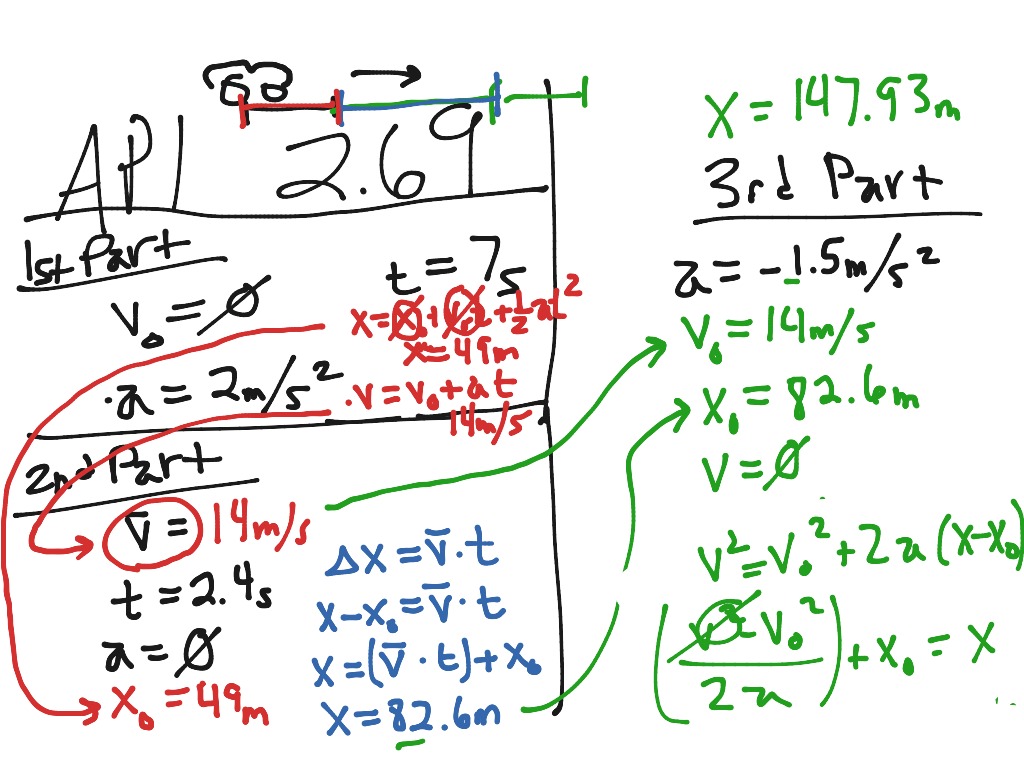 AP1 2.69
1st Part
v₀ = 0
t = 7s
x = x₀ + v₀t + ½at²
x = 49m
a = 2m/s²
v = v₀ + at
14m/s
2nd Part
v̅ = 14m/s
t = 2.4s
a = 0
x₀ = 49m
Δx = v̅ · t
x - x₀ = v̅ · t
x = (v̅ · t) + x₀
x = 82.6m
x = 147.93m
3rd Part
a = -1.5m/s²
v₀ = 14m/s
x₀ = 82.6m
v = 0
v² = v₀² + 2a(x - x₀)
(v² - v₀² / 2a) + x₀ = x